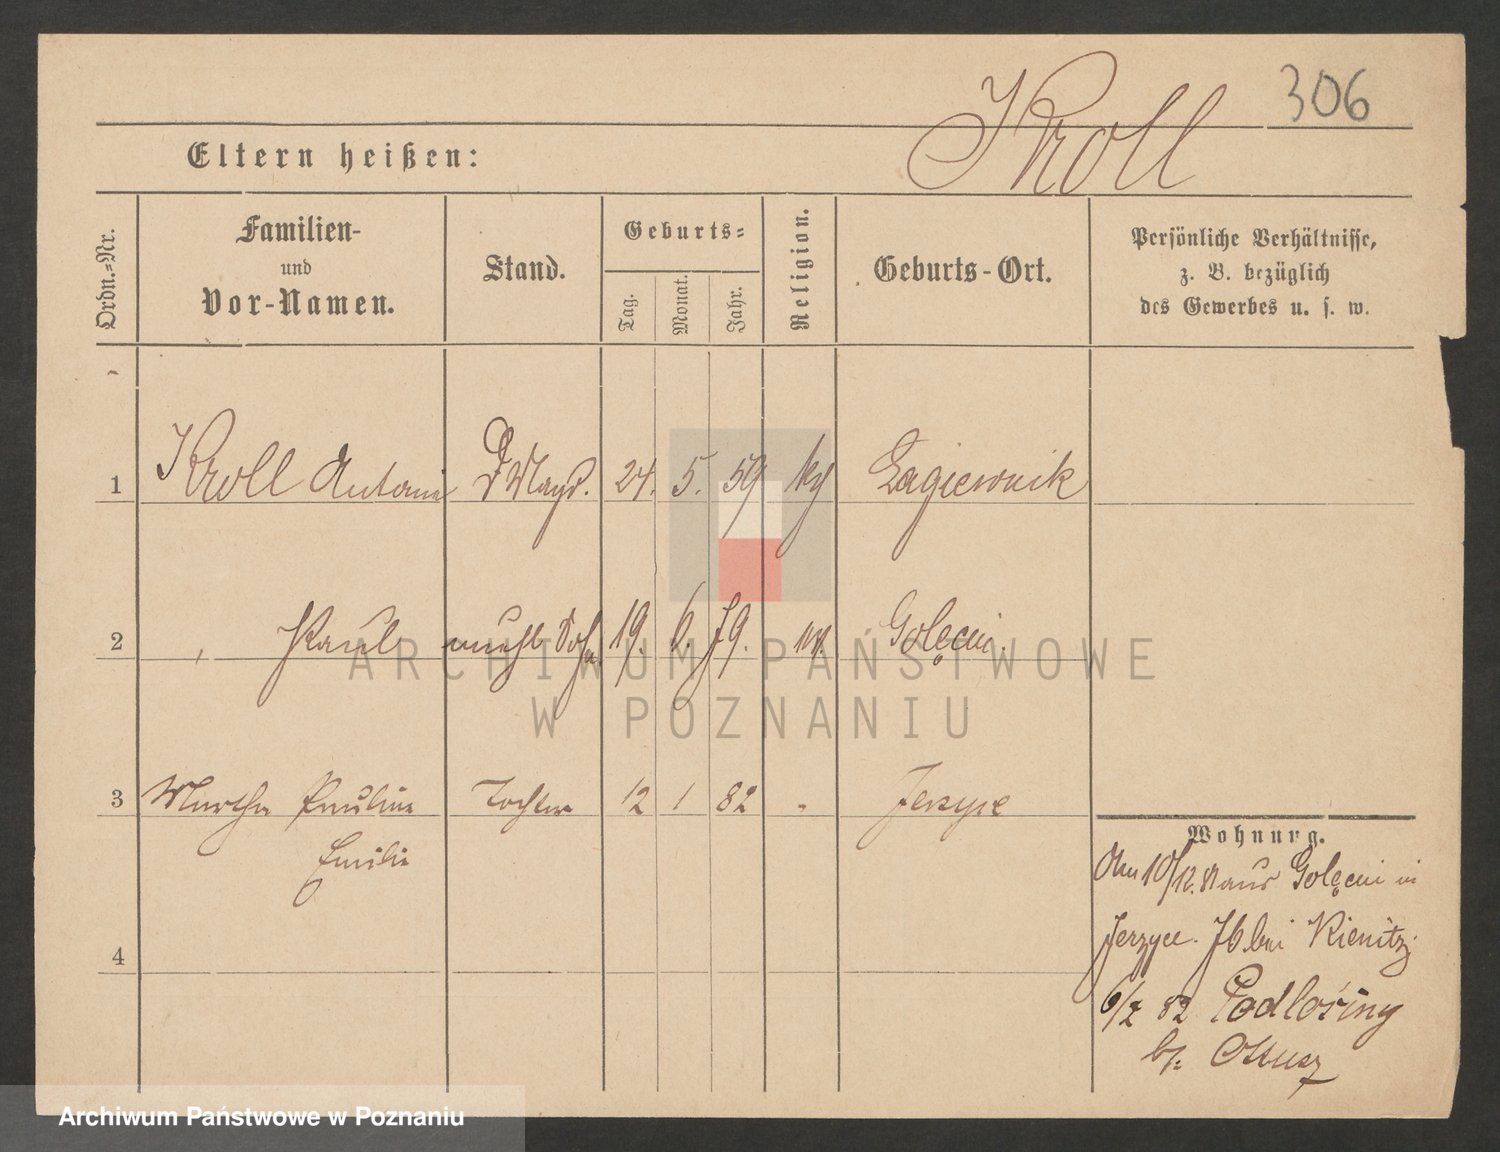 306
Kroll
Eltern heißen:
Ordn.=Nr.
Familien-
und
Vor-Namen.
Stand.
Geburts=
Tag.
Monat.
Jahr.
Religion.
Geburts-Ort.
Persönliche Verhältnisse,
z. B. bezüglich
des Gewerbes u. s. w.
1 Kroll Antonie 24. 5. 59 Łagiewnik
2 Paul Sohn 19. 6. 79. Golęcin.
3 Martha Pauline Tochter 12 1 82 Jerzyce
Emilie
4
Wohnung.
10/12. 81 aus Golęcin in
Jerzyce. 76 bei Kienitz
82 Podlosiny
b/. Otusz
ARCHIWUM PAŃSTWOWE
W POZNANIU
Archiwum Państwowe w Poznaniu